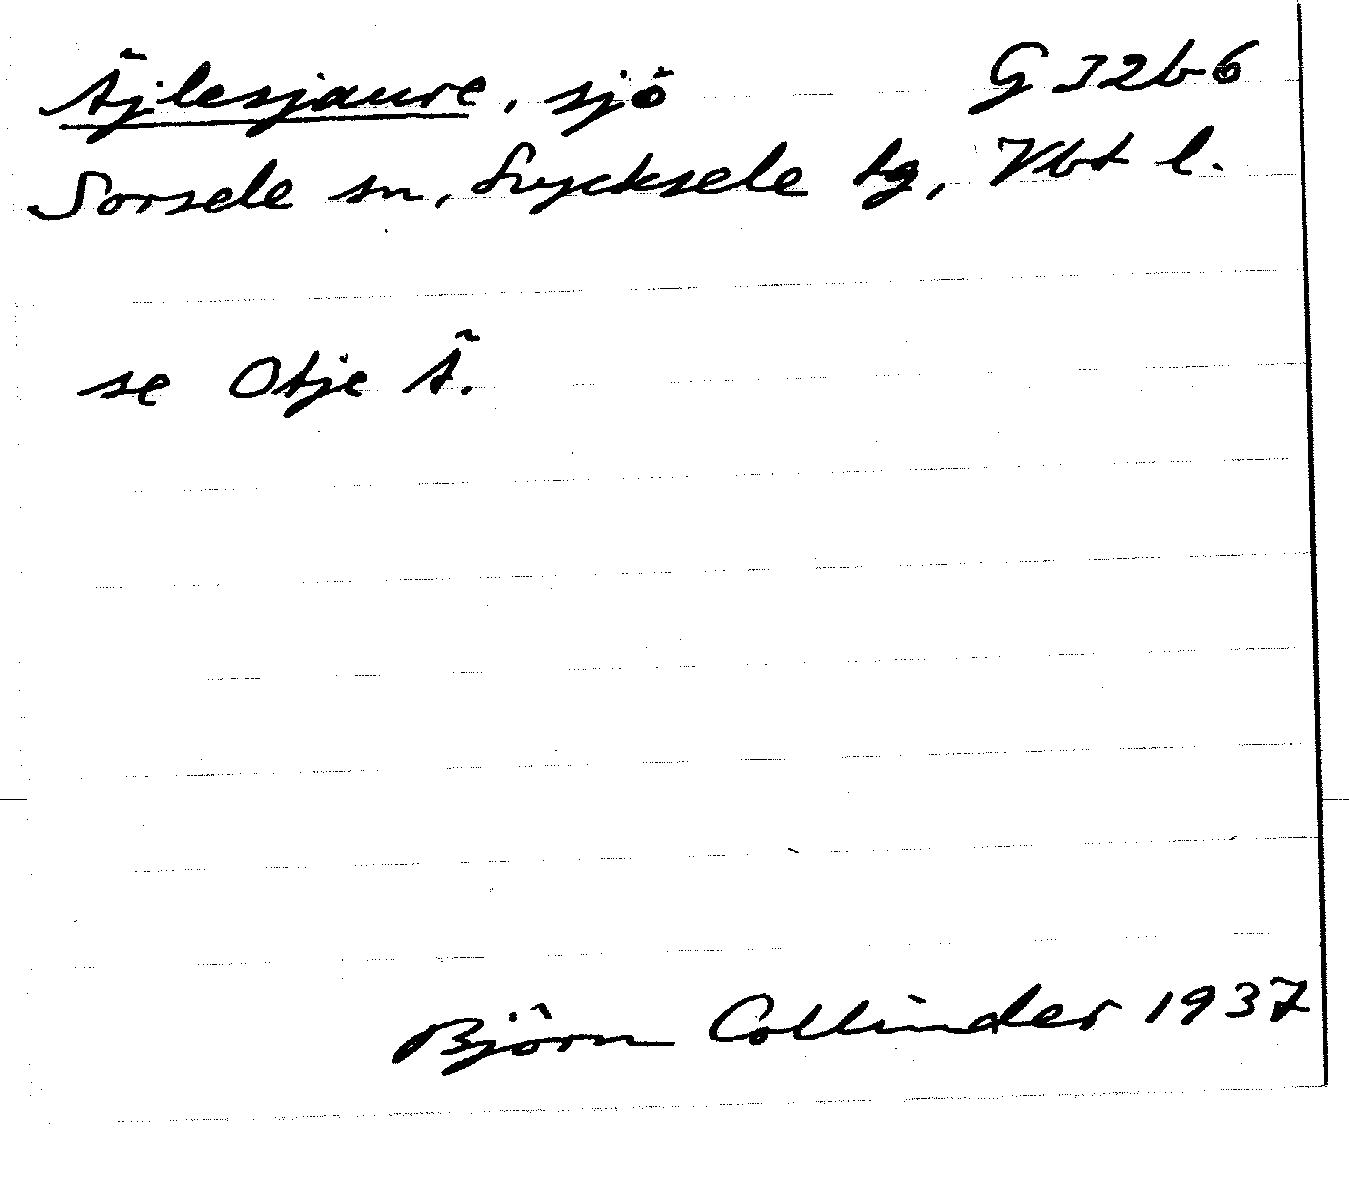 Äjlesjaure, sjö G I2b6
Sorsele sn, Lycksele tg, Vbt l.
se Otje Ä.
Björn Collinder 1937